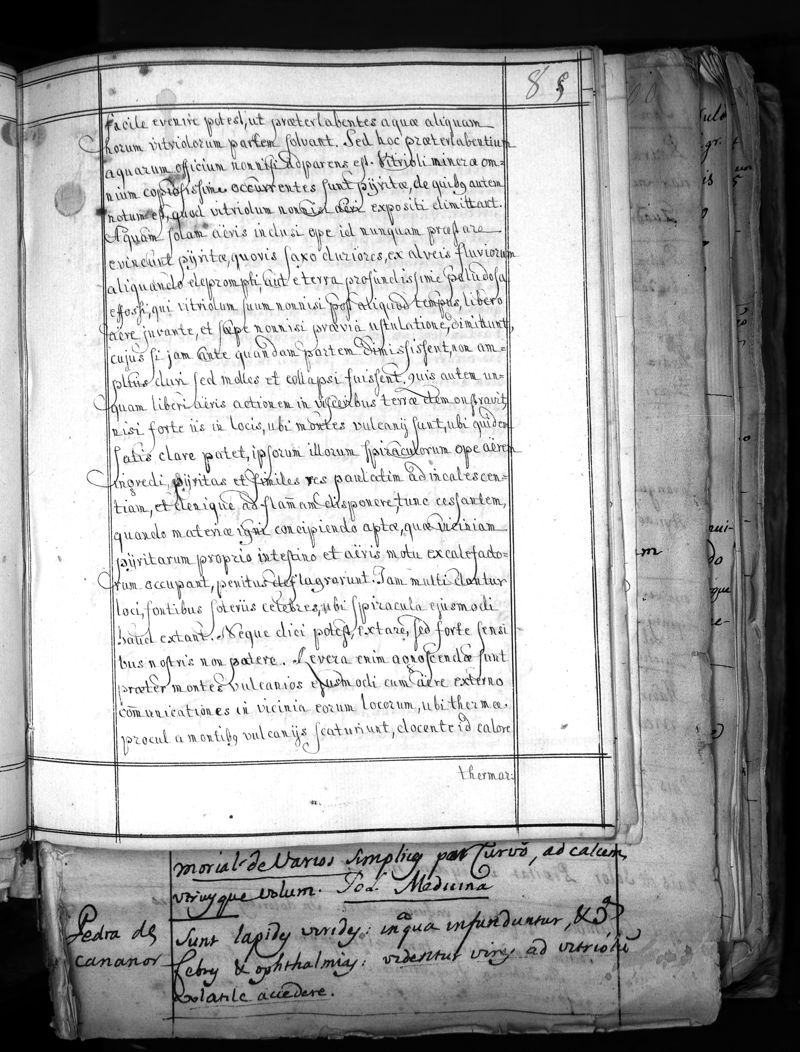 85
facile evenire potest, ut præterlabentes aquæ aliquam
horum vitriolorum partem solvant. Sed hoc præterlabentium
aquarum officium nonnisi adparens est. Vitrioli mineræ om=
nium copiosissime occurrentes sunt pÿritæ, de quibꝯ autem
notum est, quod vitriolum nonnisi aëri expositi dimittant.
Aquam solam aëris inclusi ope id nunquam præstare
evincunt pÿritæ, quovis saxo duriores, ex alveis fluviorum
aliquando deprompti, aut e terra profundissime paludosa
effossi, qui vitriolum suum nonnisi post aliquod tempus, libero
aëre juvante, et sæpe nonnisi prævia ustulatione, dimittunt,
cujus si jam ante quandam partem dimisissent, non am=
plius duri sed molles et collapsi fuissent. Quis autem un=
quam liberi aëris actionem in visceribus terræ demonstravit,
nisi forte iis in locis, ubi montes vulcanij sunt, ubi quidem
satis clare patet, ipsorum illorum spiraculorum ope aërem
ingredi, pÿritas et similes res paulatim ad incalescen=
tiam, et denique ad flam̄am disponere, tunc cessantem,
quando materiæ igni concipiendo aptæ, quæ viciniam
pÿritarum proprio intestino et aëris motu excalefacto=
rum occupant, penitus deflagrarunt. Jam multi dantur
loci, fontibus soteriis celebres, ubi spiracula ejusmodi
haud extant. Neque dici potest, extare, sed forte sensi
bus nostris non patere. Revera enim agnoscendæ sunt
præter montes vulcanios ejusmodi cum aëre externo
com̄unicationes in vicinia eorum locorum, ubi thermæ
procul a montibꝯ vulcanijs scaturiunt, docente id calore
thermar:
morial de Varios simplices por Curvo, ad calcem
utriusque volum. Medicina
Pedra de
cananor
Sunt lapides virides: in aqua infunduntur, &
febres & ophthalmias: videntur vires ad vitriolū
volatile accedere.